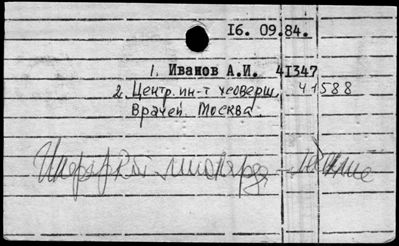 16. 09.84.
1. Иванов А.И. 41347
2. Центр. ин-т усоверш. 41588
Врачей. Москва.
Инфаркт миокарда